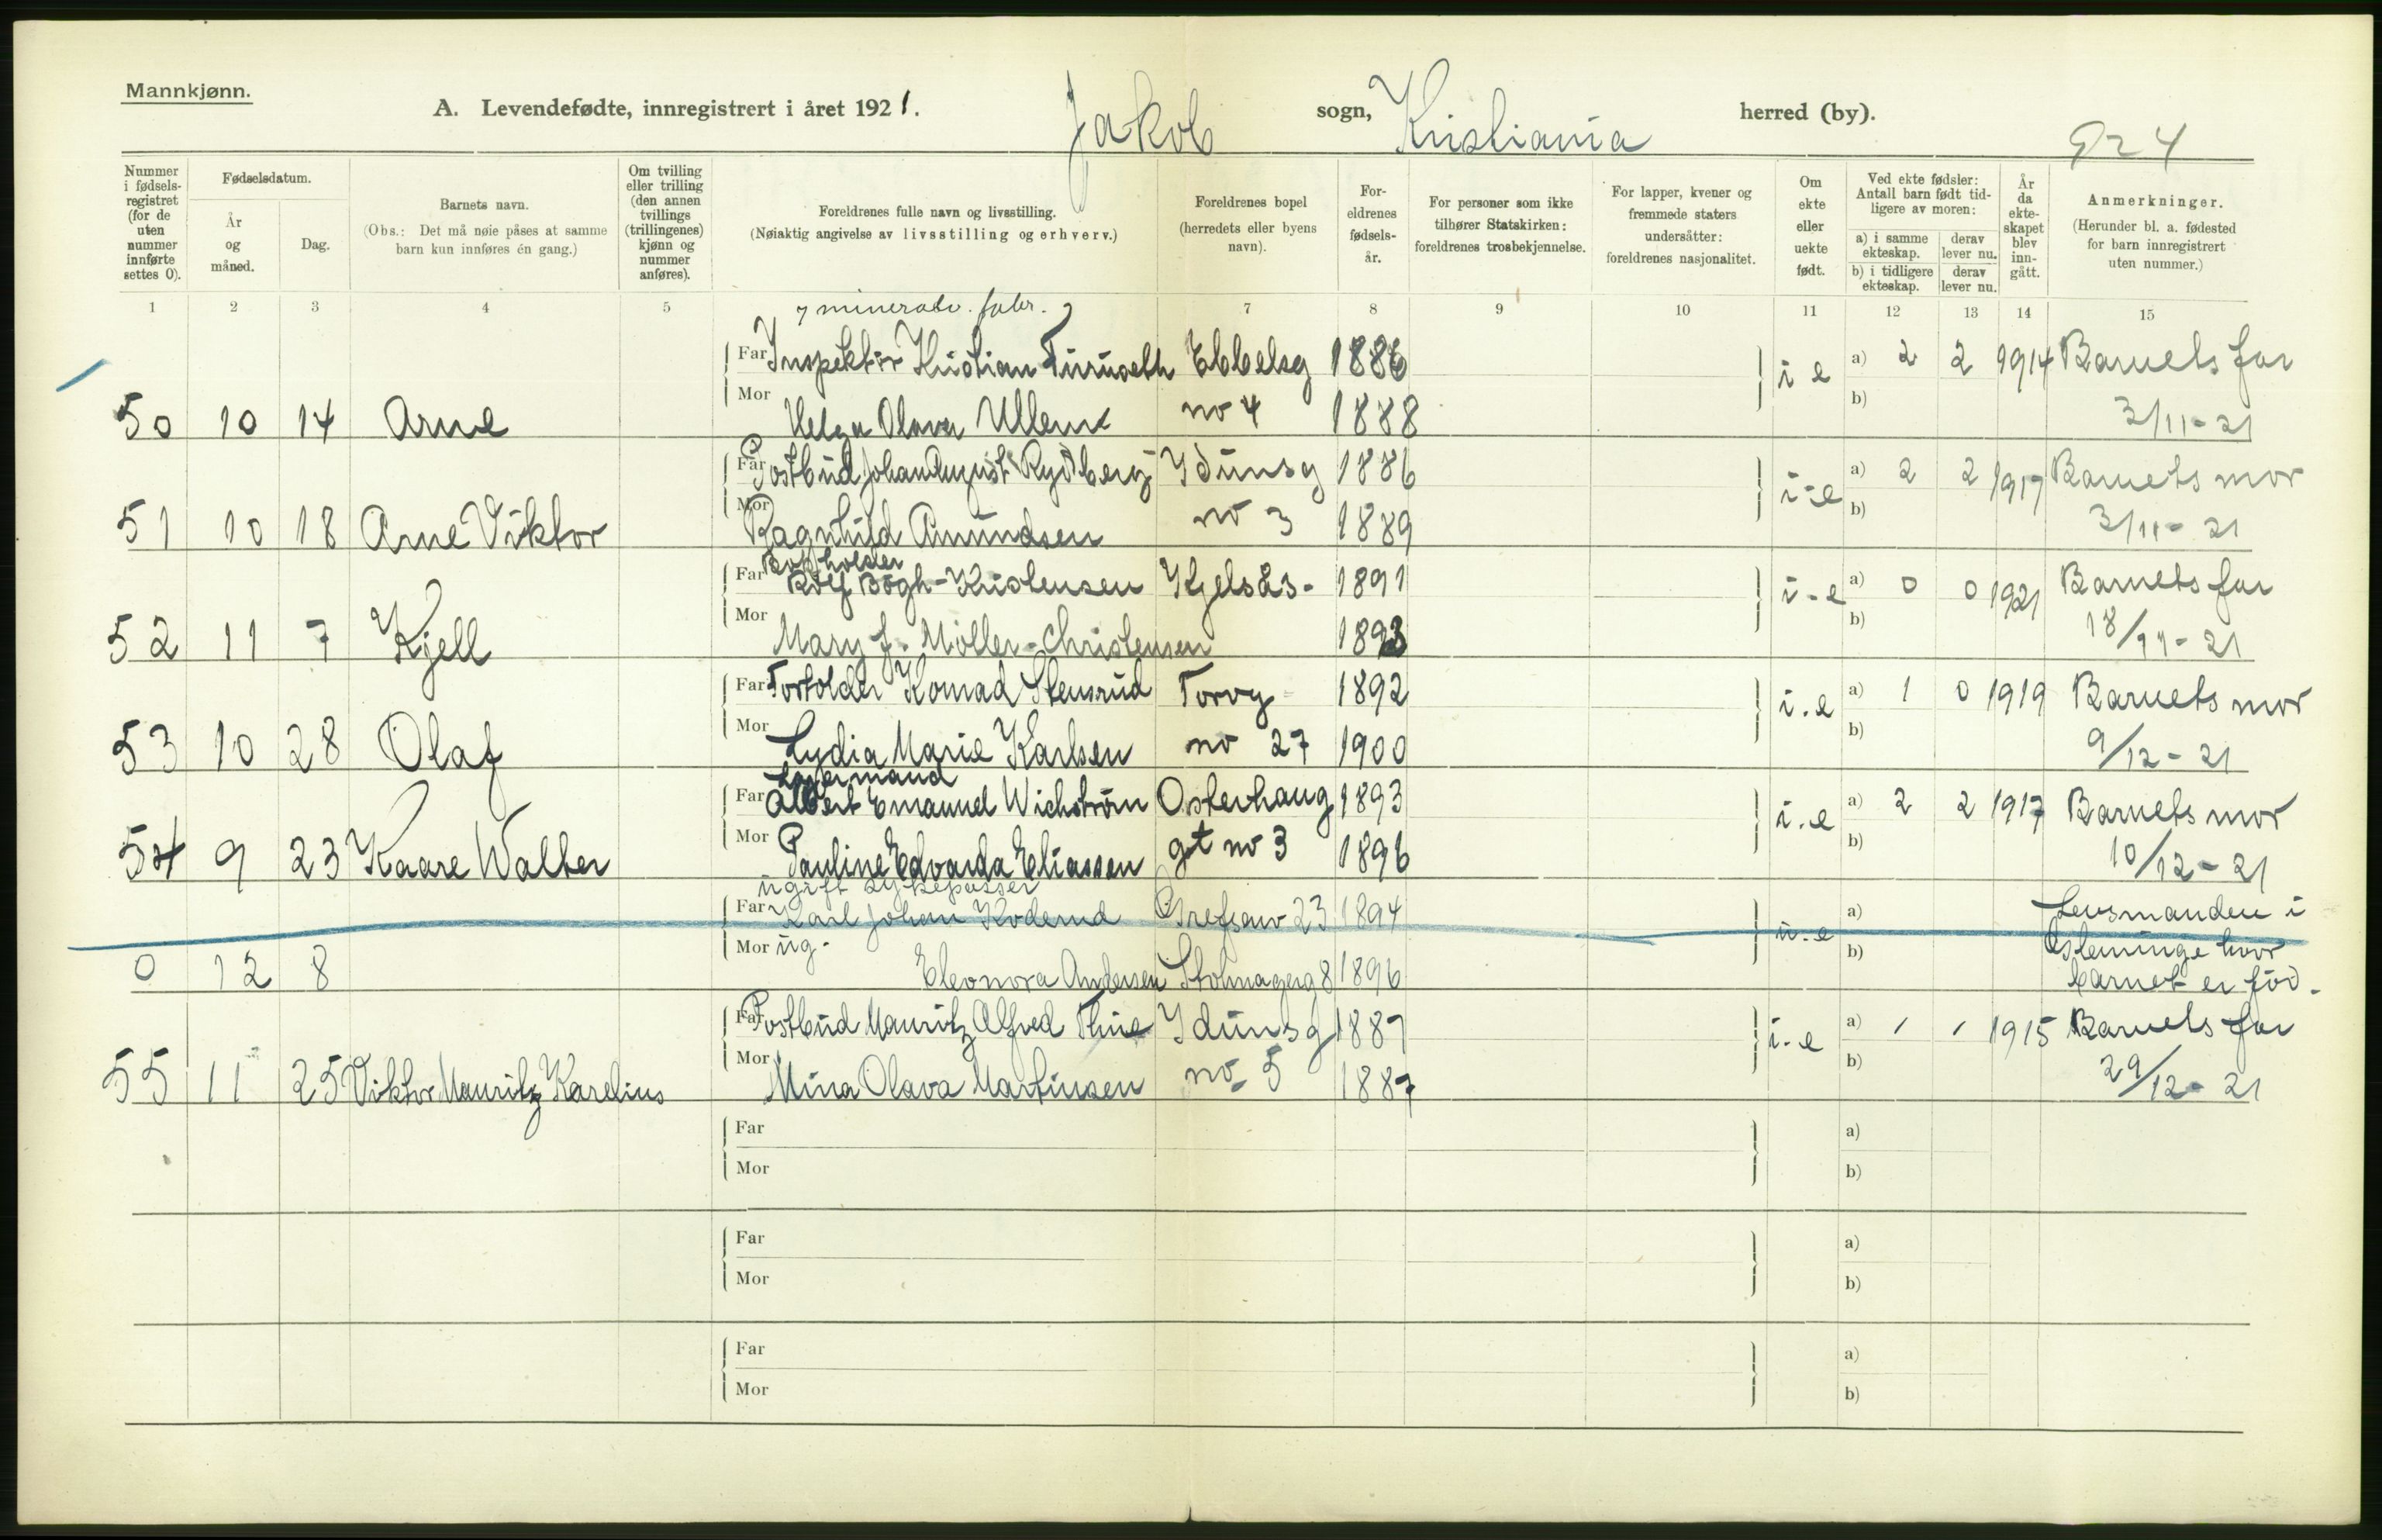 Mannkjønn.
A. Levendefødte, innregistrert i året 1921. Jakob sogn, Kristiania herred (by).
924
Nummer i fødselsregistret (for de uten nummer innførte settes 0).
Fødselsdatum.
År og måned.
Dag.
Barnets navn.
(Obs.: Det må nøie påses at samme barn kun innføres én gang.)
Om tvilling eller trilling (den annen tvillings (trillingenes) kjønn og nummer anføres).
Foreldrenes fulle navn og livsstilling.
(Nøiaktig angivelse av livsstilling og erhverv.)
Foreldrenes bopel (herredets eller byens navn).
Foreldrenes fødselsår.
For personer som ikke tilhører Statskirken: foreldrenes trosbekjennelse.
For lapper, kvener og fremmede staters undersåtter: foreldrenes nasjonalitet.
Om ekte eller uekte født.
Ved ekte fødsler: Antall barn født tidligere av moren:
a) i samme ekteskap. derav lever nu.
b) i tidligere ekteskap. derav lever nu.
År da ekteskapet blev inngått.
Anmerkninger.
(Herunder bl. a. fødested for barn innregistrert uten nummer.)
1 2 3 4 5 7 8 9 10 11 12 13 14 15
mineralv. fabr.
Far Inspektør Kristian Ebbelsg 1886 i e a) 2 2 1914 Barnets far
50 10 14 Arne Mor Helga Olava no 4 1888 b) 3/11-21
Far Postbud Johan August Rydberg Idunsg 1886 i-e a) 2 2 1917 Barnets mor
51 10 18 Arne Viktor Mor Ragnhild Amundsen no 3 1889 b) 3/11-21
Bokholder
Far Rolf Bøgh-Kristensen Kjelsås- 1891 i-e a) 0 0 1921 Barnets far
52 11 7 Kjell Mor Mary J. Møller-Christensen 1893 b) 18/11-21
Far Konrad Stensrud Torvg 1892 i.e a) 1 0 1919 Barnets mor
53 10 28 Olaf Mor Lydia Marie Karlsen no 27 1900 b) 9/12-21
Lagermand
Far Albert Emanuel Wichstrøm Osterhaug 1893 i.e a) 2 2 1917 Barnets mor
54 9 23 Kaare Walter Mor Pauline Edvarda Eliassen gt no 3 1896 b) 10/12-21
ugift sykepasser
Far Karl Johan Koderud Grefsenv 23 1894 u.e a) Lensmanden i
0 12 8 Mor ug. Eleonora Andersen Stolmagerg 8 1896 b) hvor
barnet er fød.
Far Postbud Mauritz Alfred Thue Idunsg 1887 i-e a) 1 1 1915 Barnets far
55 11 25 Viktor Mauritz Karelius Mor Mina Olava Martinsen no 5 1887 b) 29/12-21
Far a)
Mor b)
Far a)
Mor b)
Far a)
Mor b)